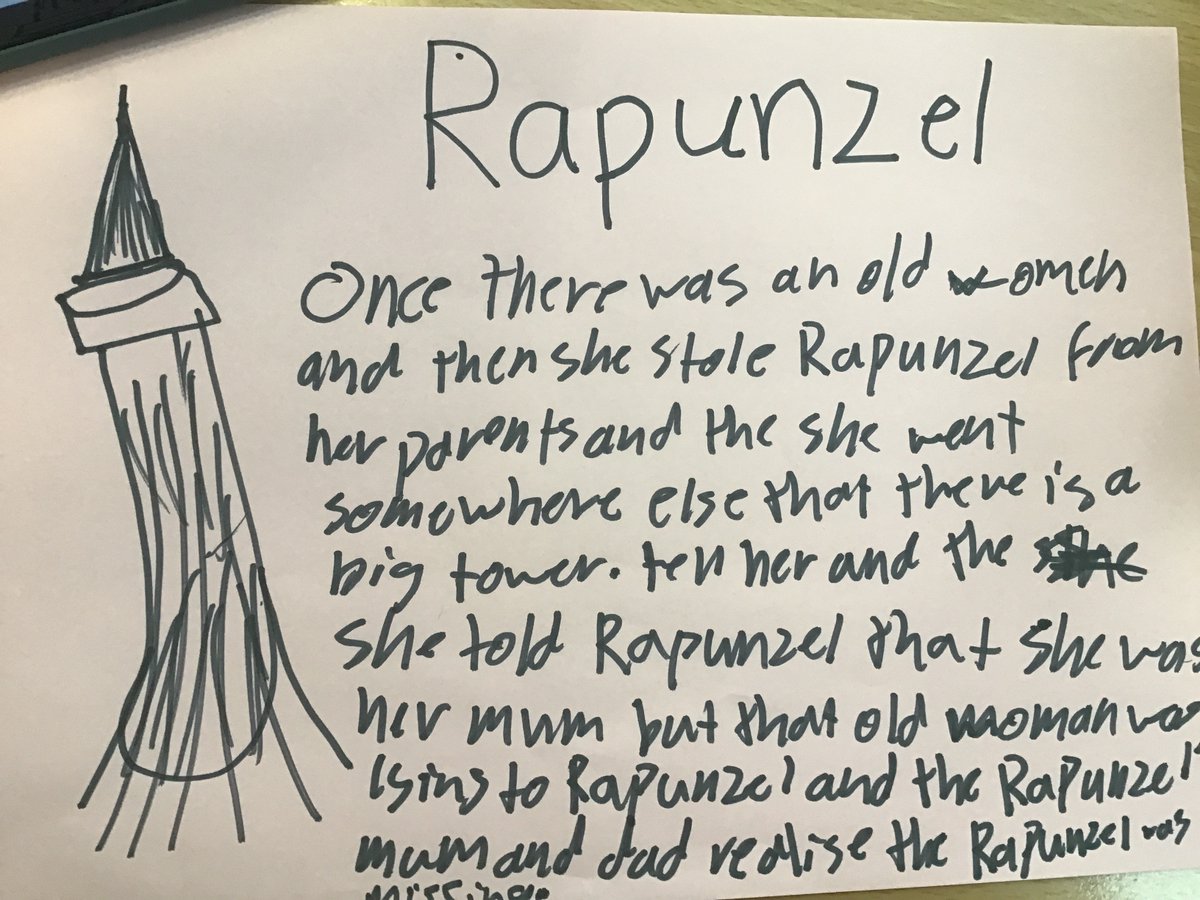 Rapunzel
Once there was an old women
and then she stole Rapunzel from
her parents and the she went
somewhere else that there is a
big tower. tell her and the
she told Rapunzel that she was
her mum but that old woman was
lsing to Rapunzel and the Rapunzel
mum and dad realise the Rapunzel was
missing.